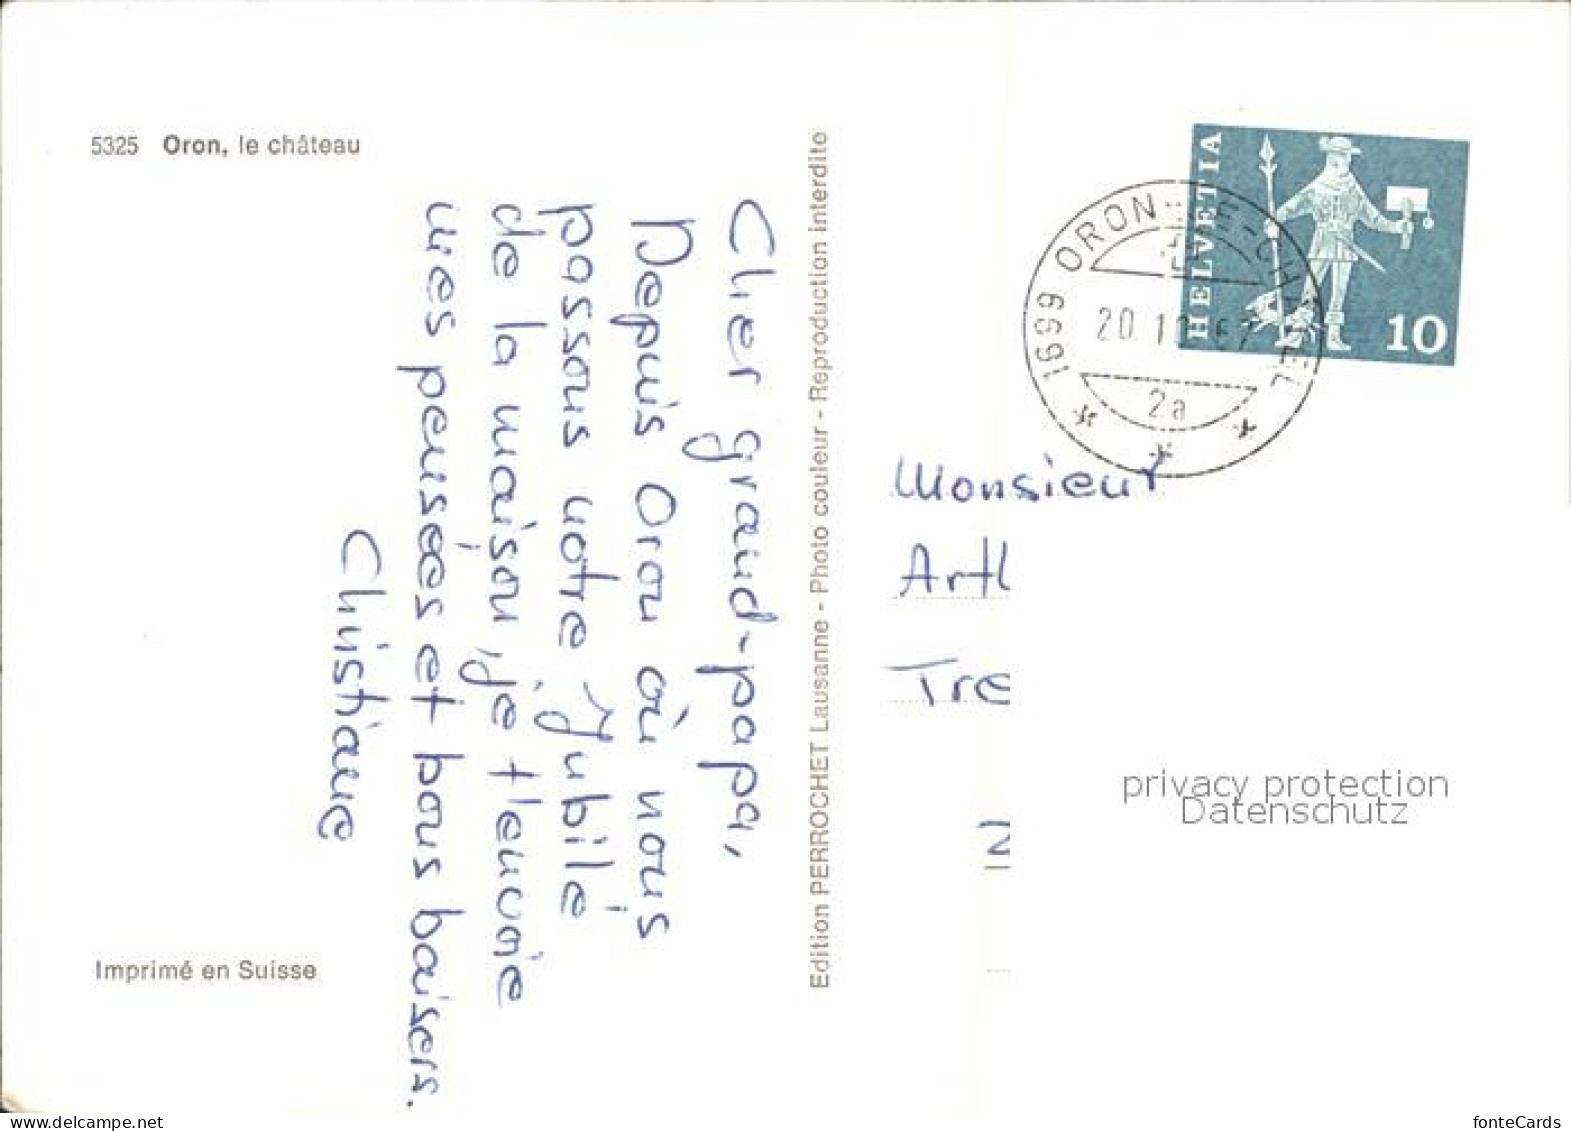 5325 Oron, le château
Cher grand-papa,
Depuis Oron où nous
passons notre Jubilé
de la maison, je t'envoie
mes pensées et bons baisers.
Christiane
Imprimé en Suisse
Edition PERROCHET Lausanne - Photo couleur - Reproduction interdite
HELVETIA
10
1699 ORON-LE-CHATEL
20.10.67
2a
Monsieur
Art
Tre
privacy protection
Datenschutz
www.delcampe.net
fonteCards